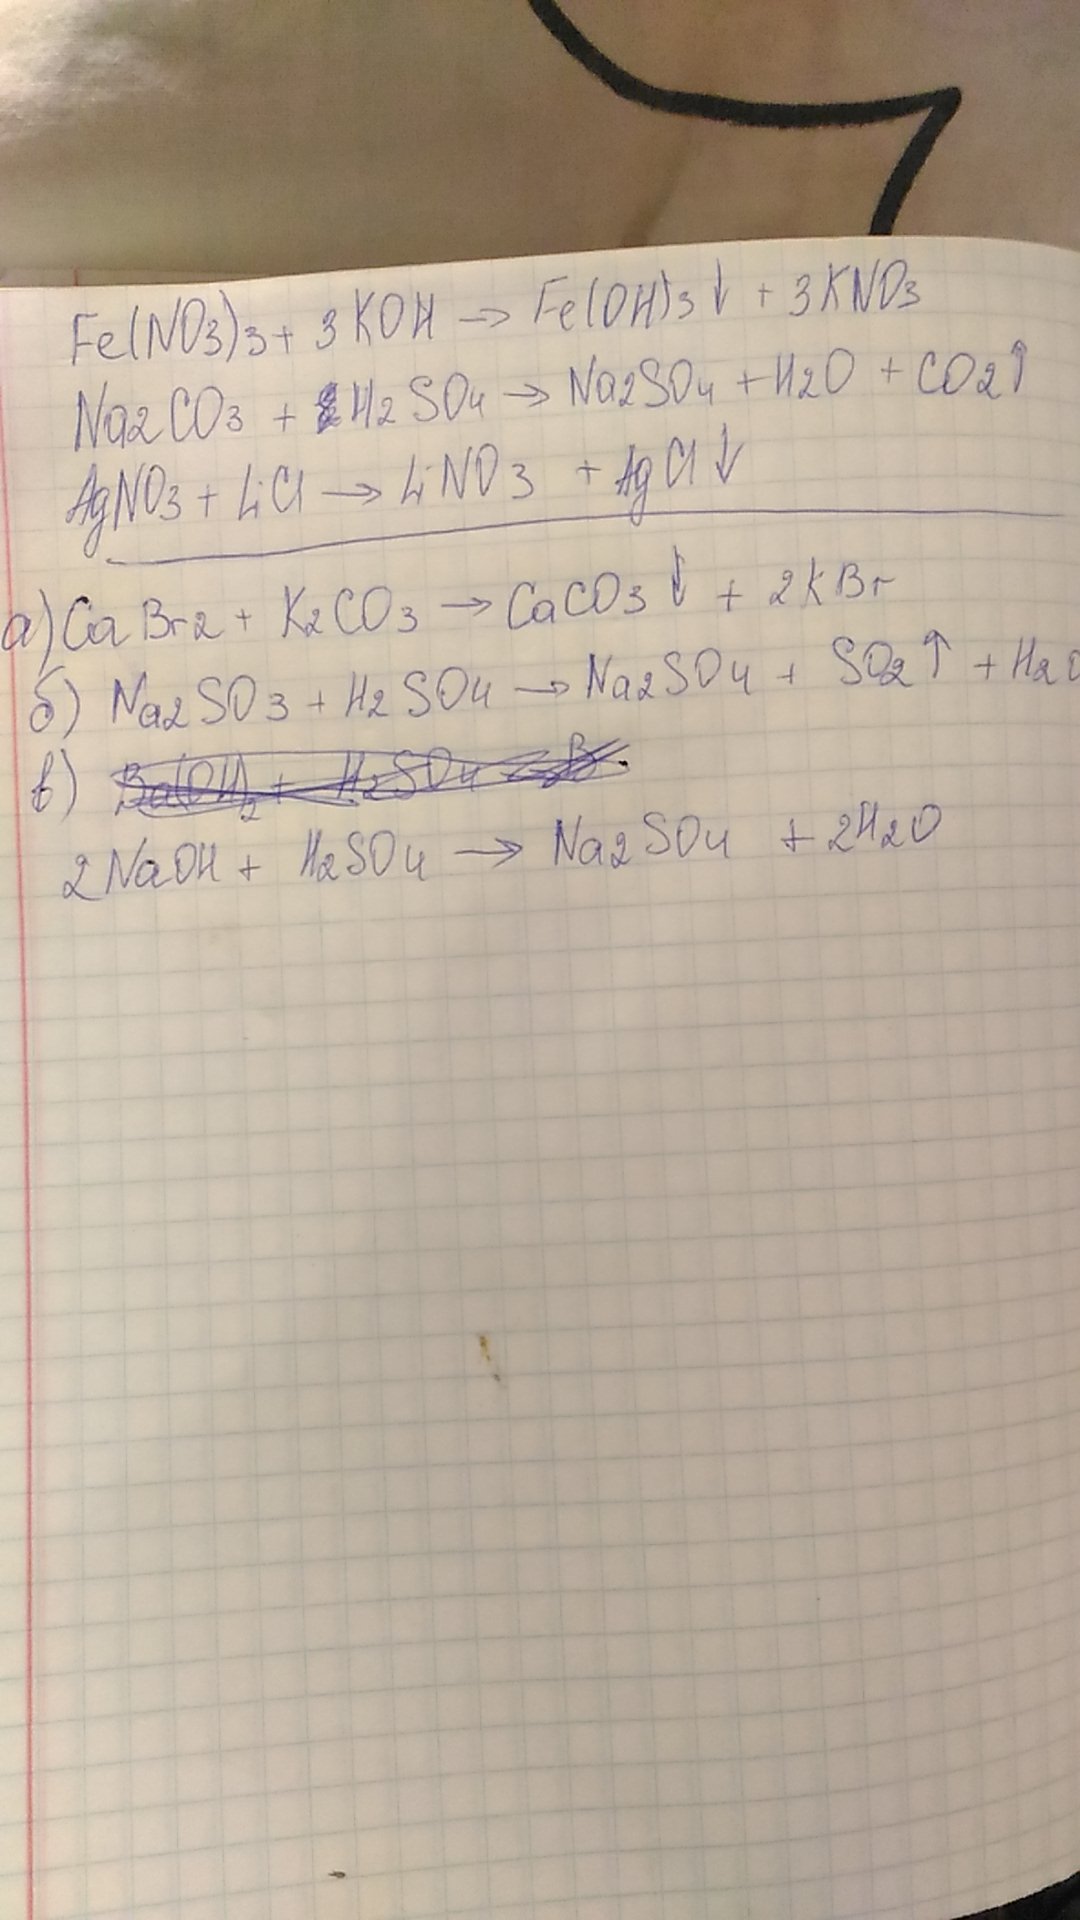 Fe(NO3)3 + 3KOH → Fe(OH)3↓ + 3KNO3
Na2CO3 + H2SO4 → Na2SO4 + H2O + CO2↑
AgNO3 + LiCl → LiNO3 + AgCl↓
а) CaBr2 + K2CO3 → CaCO3↓ + 2KBr
б) Na2SO3 + H2SO4 → Na2SO4 + SO2↑ + H2O
в) Ba(OH)2 + H2SO4
2NaOH + H2SO4 → Na2SO4 + 2H2O